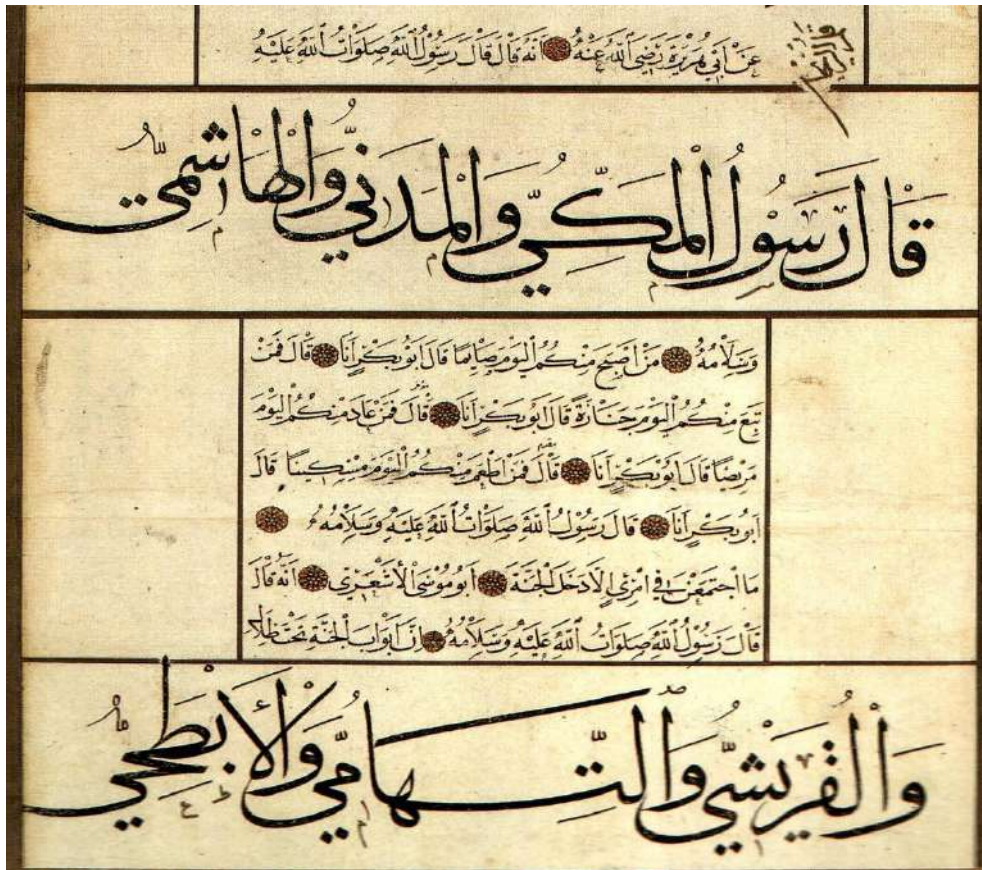 عَنْ اَبِي هُرَيْرَةَ رَضِيَ اللّٰهُ عَنْهُ اَنَّهُ قَالَ قَالَ رَسُولُ اللّٰهِ صَلَوَاتُ اللّٰهِ عَلَيْهِ
قَالَ رَسُولُ الْمَكِّيِّ وَالْمَدَنِيِّ وَالْهَاشِمِيِّ
وَسَلَامُهُ مَنْ اَصْبَحَ مِنْكُمُ الْيَوْمَ صَايِمًا قَالَ اَبُو بَكْرٍ اَنَا قَالَ فَمَنْ
تَبِعَ مِنْكُمُ الْيَوْمَ جَنَازَةً قَالَ اَبُو بَكْرٍ اَنَا قَالَ فَمَنْ عَادَ مِنْكُمُ الْيَوْمَ
مَرِيضًا قَالَ اَبُو بَكْرٍ اَنَا قَالَ فَمَنْ اَطْعَمَ مِنْكُمُ الْيَوْمَ مِسْكِينًا قَالَ
اَبُو بَكْرٍ اَنَا قَالَ رَسُولُ اللّٰهِ صَلَوَاتُ اللّٰهِ عَلَيْهِ وَسَلَامُهُ
مَا اجْتَمَعْنَ فِي امْرِئٍ اِلَّا دَخَلَ الْجَنَّةَ اَبُو مُوسَى الْاَشْعَرِيّ اَنَّهُ قَالَ
قَالَ رَسُولُ اللّٰهِ صَلَوَاتُ اللّٰهِ عَلَيْهِ وَسَلَامُهُ اِنَّ اَبْوَابَ الْجَنَّةِ تَحْتَ ظِلَالِ
وَالْقُرَيْشِيِّ وَالتِّهَامِيِّ وَالْاَبْطَحِيِّ